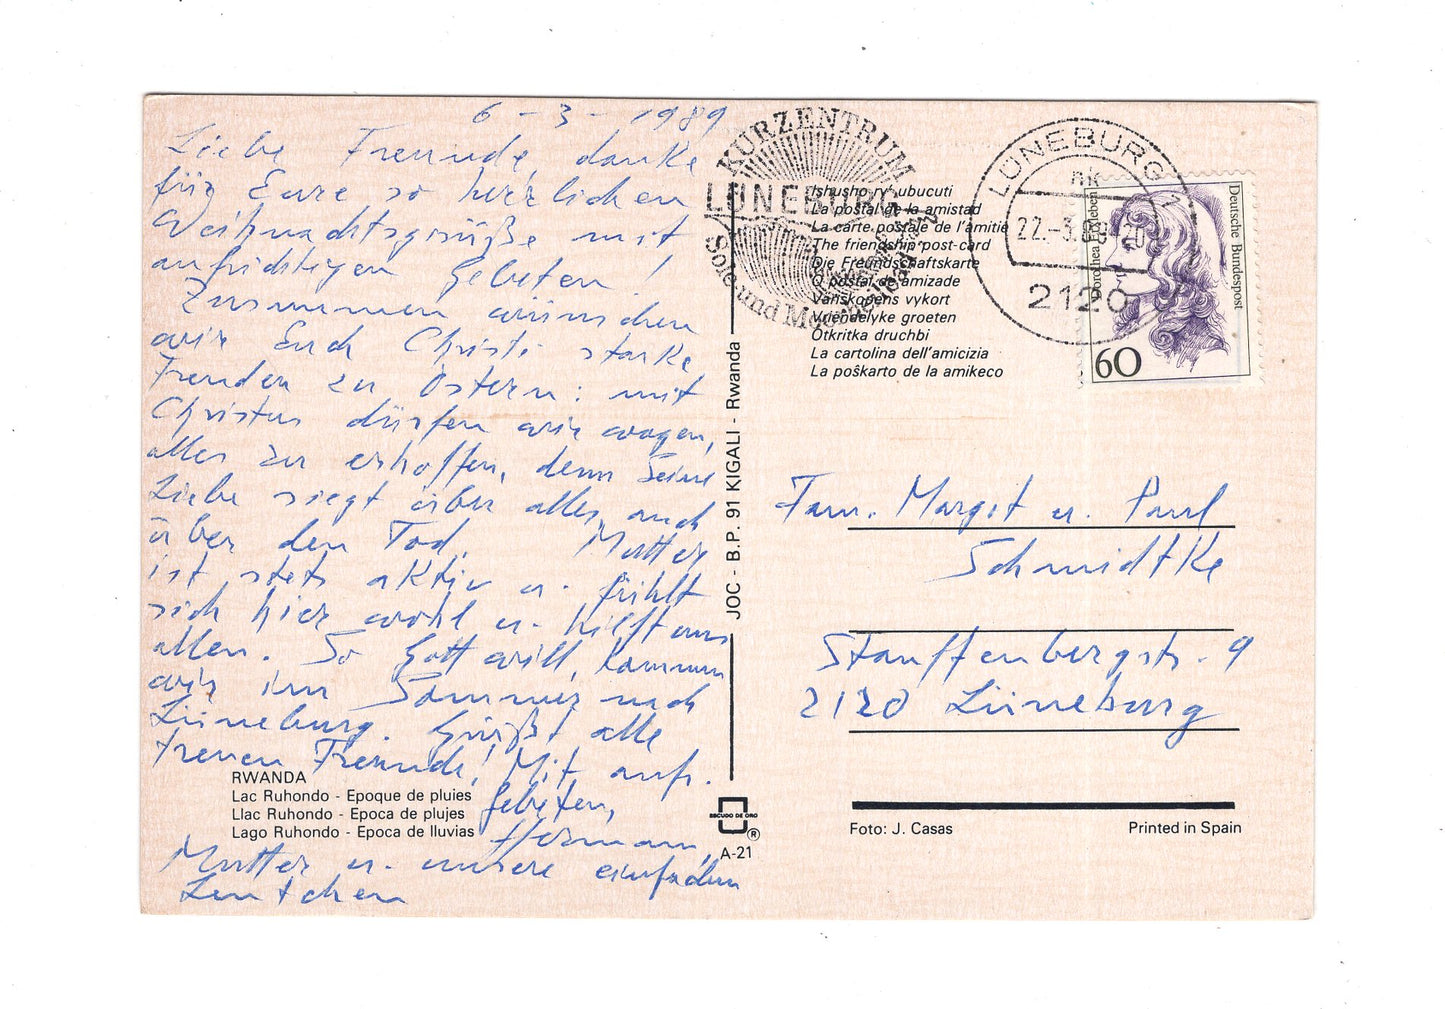 6-3-1989
Liebe Freunde, danke
für Eure so herzlichen
Weihnachtsgrüße mit
aufrichtigen Gebeten!
Zusammen wünschen
wir Euch Christi starke
Freuden zu Ostern: mit
Christus dürfen wir wagen,
alles zu erhoffen, denn Seine
Liebe siegt über alles, auch
über den Tod. Mutter
ist stets aktiv u. fühlt
sich hier wohl u. hilft uns
allen. So Gott will, kommen
wir im Sommer nach
Lüneburg. Grüßt alle
treuen Freunde! Mit aufr.
Gebeten,
Hermann,
Mutter u. unsere einfachen
Leutchen
RWANDA
Lac Ruhondo - Epoque de pluies
Llac Ruhondo - Epoca de plujes
Lago Ruhondo - Epoca de lluvias
JOC - B.P. 91 KIGALI - Rwanda
ESCUDO DE ORO
®
A-21
KURZENTRUM
LÜNEBURG
Sole und Moorheilbad
Ishusho ry' ubucuti
La postal de la amistad
La carte postale de l'amitié
The friendship post-card
Die Freundschaftskarte
O postal de amizade
Vänskapens vykort
Vriendelyke groeten
Otkritka druchbi
La cartolina dell'amicizia
La poŝkarto de la amikeco
LÜNEBURG 1
nk
22.-3.
2120
Dorothea Erxleben
Deutsche Bundespost
60
Fam. Margot u. Paul
Schmidtke
Stauffenbergstr. 9
2120 Lüneburg
Foto: J. Casas
Printed in Spain